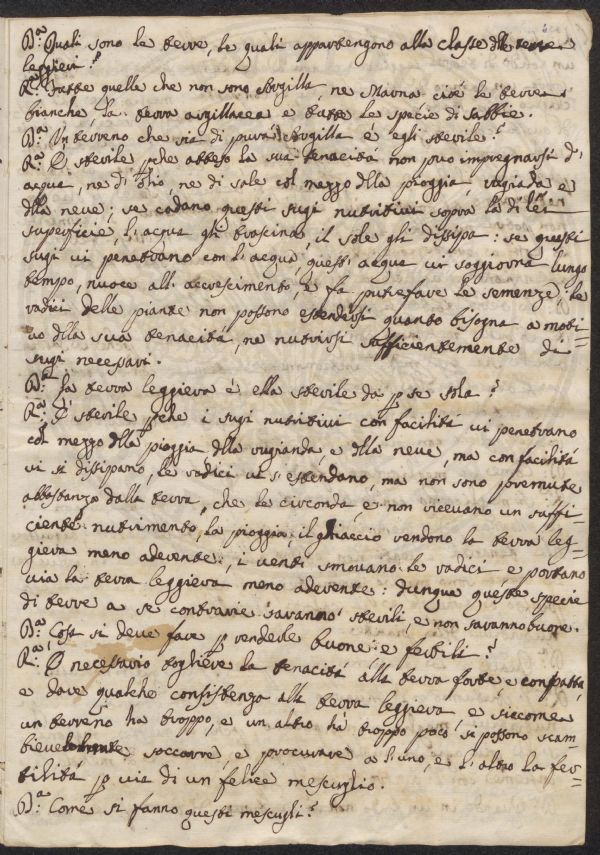 D.ª Quali sono le terre, le quali appartengono alla classe dlle terre
leggieri?
R.ª Tutte quelle che non sono Argilla, ne Marna cioè le terre
bianche, la terra argillacea e tutte le specie di sabbie.
D.ª Un terreno che sia di pura Argilla è egli sterile?
R.ª È sterile pche atteso la sua tenacità non può impregnarsi d'
acqua, ne di olio, ne di sale col mezzo dlla pioggia, rugiada e
dlla neve; se cadano questi sugi nutritivi sopra la di lei
superficie, l'acqua gli trascina, il sole gli dissipa: se questi
sugi vi penetrano con l'acqua, quest'acqua vi soggiorna lungo
tempo, nuoce all'accrescimento, e fa putrefare le semenze, le
radici delle piante non possono estendersi quanto bisogna a moti=
vo dlla sua tenacità, ne nutrirsi sufficientemente di
sugi necessari.
D.ª La terra leggiera è ella sterile da p se sola?
R.ª È sterile pche i sugi nutritivi con facilità vi penetrano
col mezzo dlla pioggia dlla rugianda, e dlla neve, ma con facilità
vi si dissipano, le radici vi s'estendano, ma non sono premute
abbastanza dalla terra, che le circonda, e non ricevano un suffi=
ciente nutrimento, la pioggia, il ghiaccio rendono la terra leg=
giera meno aderente, i venti smovano le radici e portano
via la terra leggiera meno aderente: dunque queste specie
di terre a se contrarie saranno sterili, e non saranno buone.
D.ª Cosa si deve fare p renderle buone e fertili?
R.ª È necessario togliere la tenacità alla terra forte, e compatta,
e dare qualche consistenza alla terra leggiera, e siccome
un terreno ha troppo, e un altro ha troppo poco si possono scam=
bievolmente soccorre, e procurare a l'uno, e l'altro la fer=
tilità p via di un felice mescuglio.
D.ª Come si fanno questi mescugli?